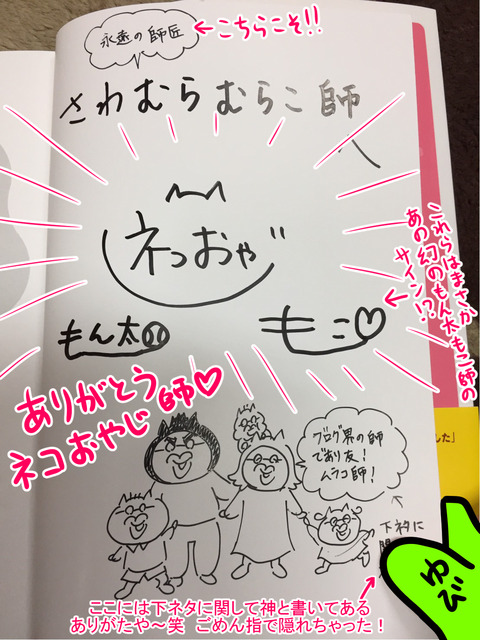 永遠の師匠
こちらこそ!!
さわむらむらこ師
へ
ネコおやじ
これらはまさか
あの幻のもん太もこ師の
サイン!?
もん太
もこ♡
ありがとう
ネコおやじ師♡
ブログ界の師
であり友!
ムラコ師!
した」
下ネタに
ゆび
ここには下ネタに関して神と書いてある
ありがたや〜笑 ごめん指で隠れちゃった!